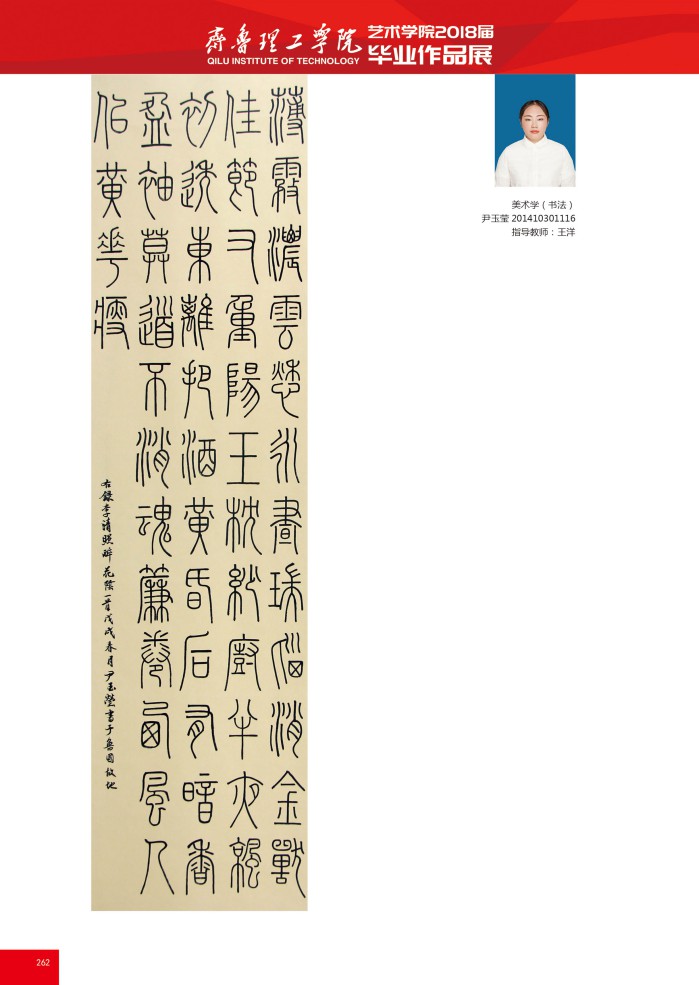 齊魯理工學院
QILU INSTITUTE OF TECHNOLOGY
艺术学院2018届
毕业作品展
薄霧濃雲愁永晝瑞腦消金獸
佳節又重陽玉枕紗廚半夜涼
初透東離把酒黃昏后有暗香
盈袖莫道不消魂簾卷西風人
佀黃華瘦
右錄李清照醉花陰一首戊戌春月尹玉瑩書于魯國故地
美术学（书法）
尹玉莹 201410301116
指导教师：王洋
262